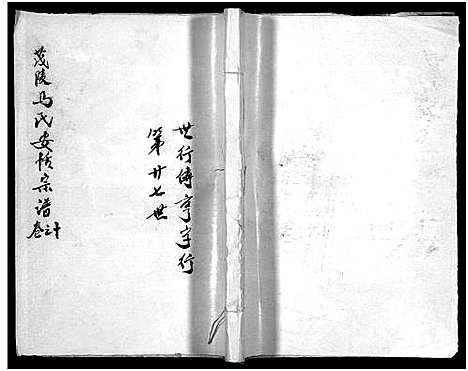 世行傳亨字行
第廿七世
茂陵馬氏安恬宗谱
卷之十